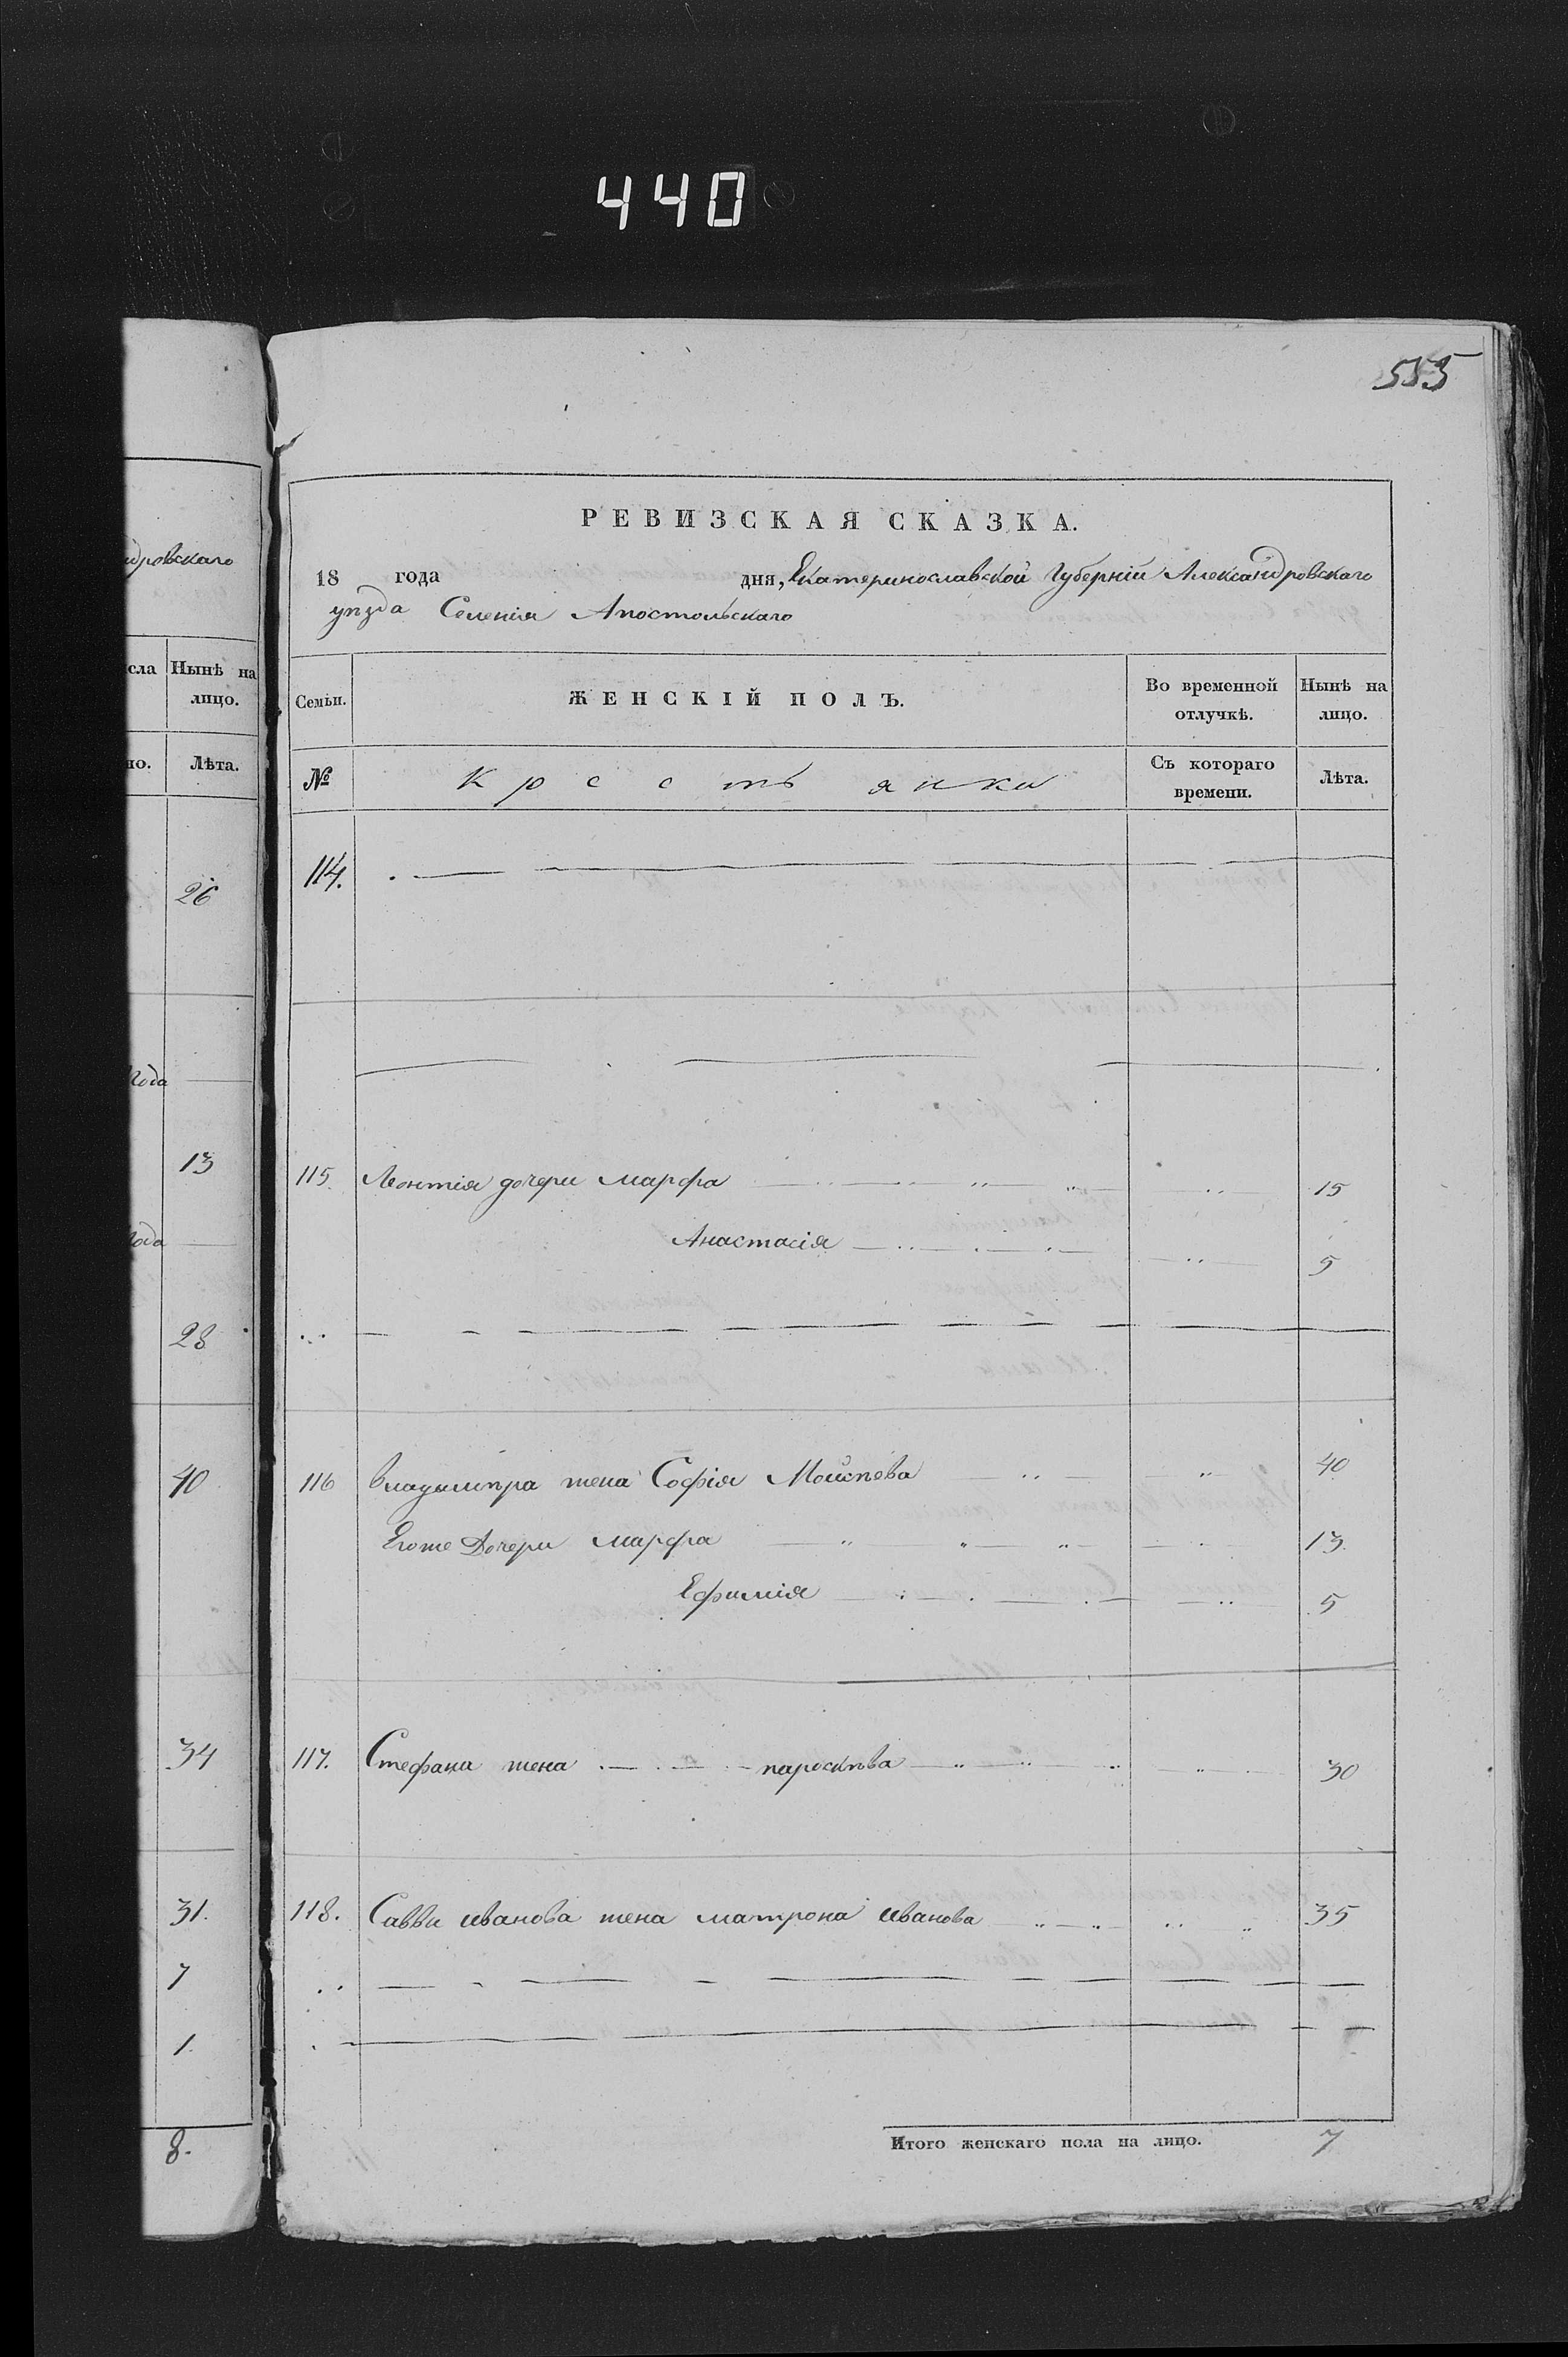 440
555
РЕВИЗСКАЯ СКАЗКА.
18 года дня, Екатеринославской Губерніи Александровскаго
уѣзда Селенія Апостольскаго
дровскаго
сла Нынѣ на лицо.
но. Лѣта.
26
года
13
года
28
40
34
31.
7
1.
8.
Семьи. ЖЕНСКІЙ ПОЛЪ. Во временной отлучкѣ. Нынѣ на лицо.
№ Крестьянки Съ котораго времени. Лѣта.
114.
115. Леонтія дочери марфа 15
Анастасія 5
116 владимира жена Софія Моисѣева 40
Егоже Дочери марфа 13.
Ефимія 5
117. Стефана жена парасκѣва 30
118. Савви иванова жена матрона иванова 35
Итого женскаго пола на лицо. 7